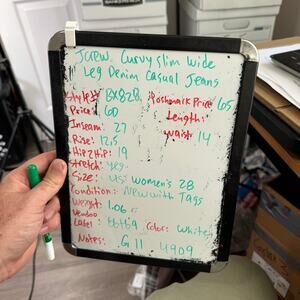 JCrew Curvy Slim Wide
Leg Denim Casual Jeans
Style#: BX828 Poshmark Price: 65
Price: 60 Length:
Inseam: 27 waist: 14
Rise: 12.5
Hip 2 Hip: 19
Stretch: yes
Size: US: women's 28
Condition: New with Tags
Weight: 1.06
Vendoo
Label: Color: White
Notes: G11 4909